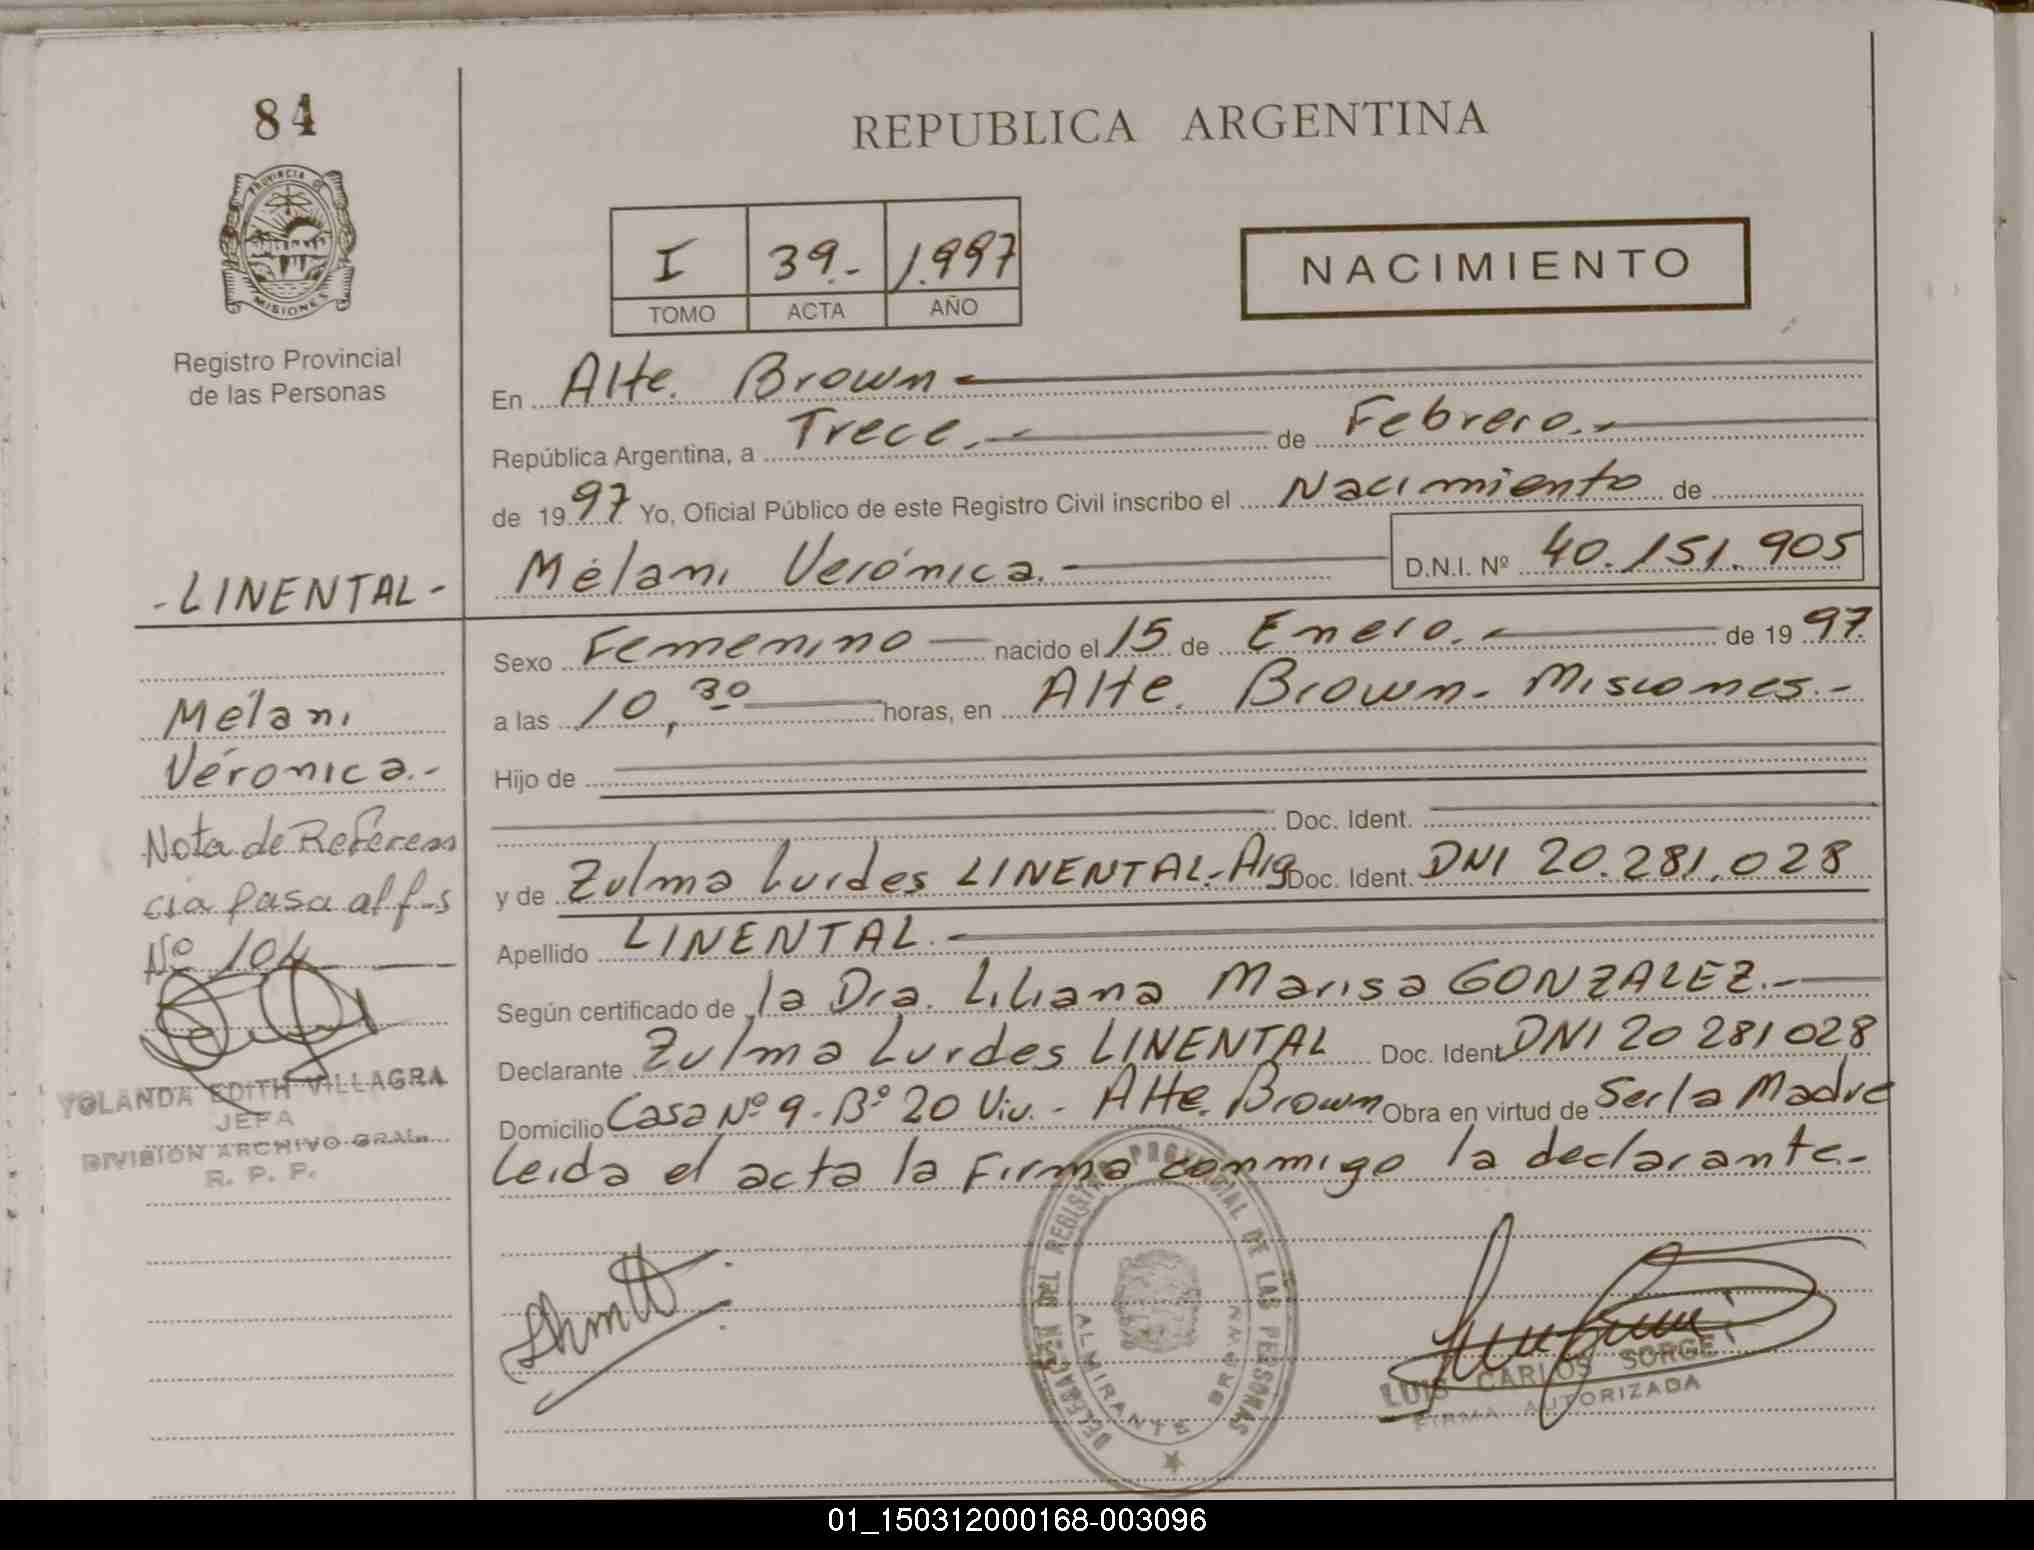 84
REPUBLICA ARGENTINA
PROVINCIA DE
MISIONES
Registro Provincial
de las Personas
I 39.- 1.997
TOMO ACTA AÑO
NACIMIENTO
En Alte. Brown
República Argentina, a Trece.- de Febrero.-
de 1997 Yo, Oficial Público de este Registro Civil inscribo el Nacimiento de
Mélani Verónica. D.N.I. Nº 40.151.905
Sexo Femenino nacido el 15 de Enero. de 1997.
a las 10,30 horas, en Alte. Brown- Misiones.-
Hijo de
Doc. Ident.
y de Zulma Lurdes LINENTAL-Arg Doc. Ident. DNI 20.281.028
Apellido LINENTAL.
Según certificado de la Dra. Liliana Marisa GONZALEZ.-
Declarante Zulma Lurdes LINENTAL Doc. Ident DNI 20 281 028
Domicilio Casa Nº 9-Bº 20 Viv.- Alte. Brown Obra en virtud de Ser la Madre
Leida el acta la Firma conmigo la declarante-
-LINENTAL-
Mélani
Véronica.-
Nota de Referen
cia pasa al f-s
Nº 104
YOLANDA EDITH VILLAGRA
JEFA
DIVISION ARCHIVO GRAL.
R. P. P.
DEL REGISTRO PROVINCIAL DE LAS PERSONAS
ALMIRANTE BROWN
LUIS CARLOS SORGE
FIRMA AUTORIZADA
01_150312000168-003096